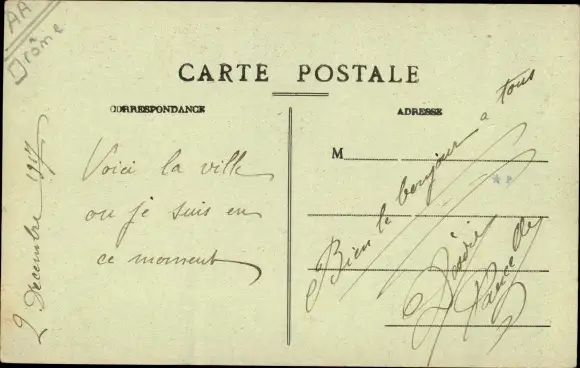 AA
Drôme
CARTE POSTALE
CORRESPONDANCE
ADRESSE
Voici la ville
ou je suis en
ce moment
2 Decembre 1917
M
Bien le bonjour a tous